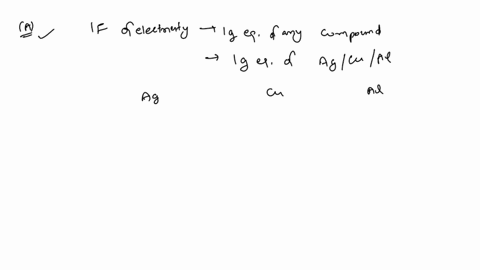 (A) ✓ 1F of electricity → 1g eq. of any compound
→ 1g eq. of Ag/Cu/Al
Ag Cu Al